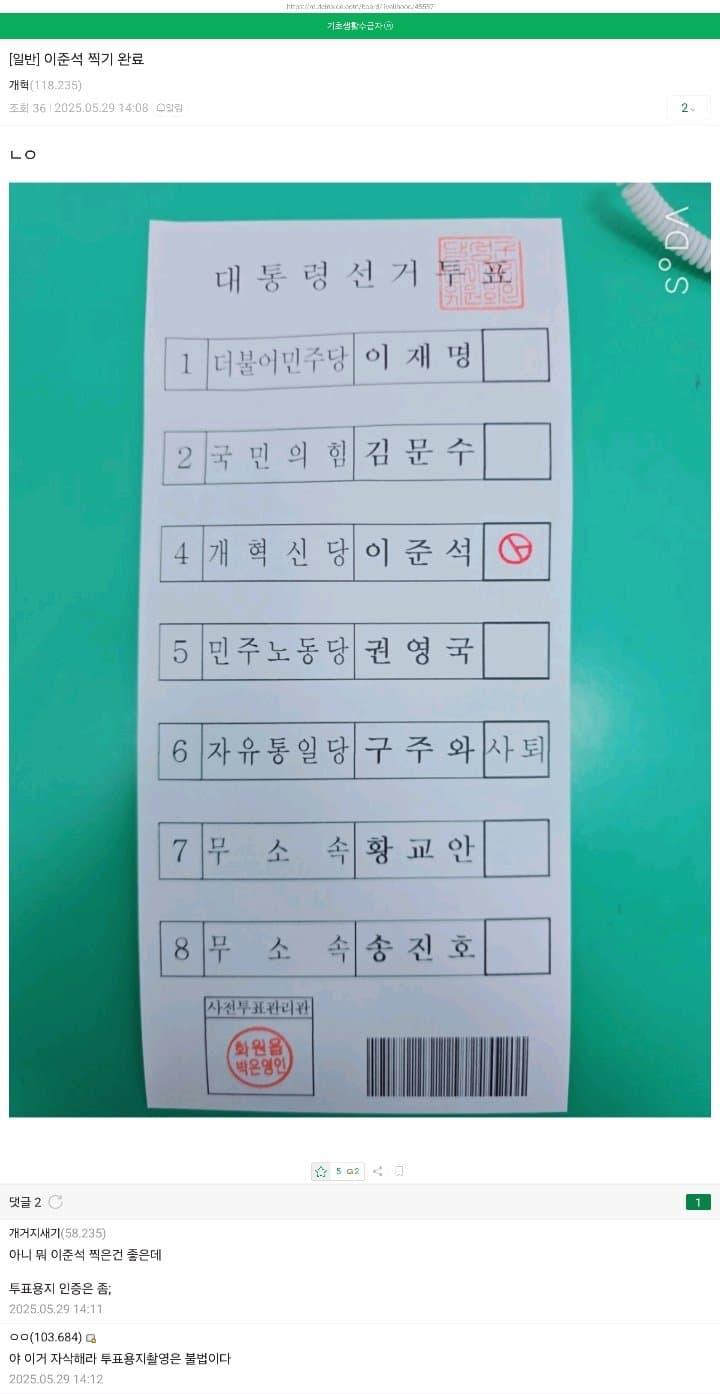 기초생활수급자
[일반] 이준석 찍기 완료
개혁(118.235)
조회 36 | 2025.05.29 14:08 알림
2
ㄴㅇ
대통령선거투표
1 더불어민주당 이재명
2 국민의힘 김문수
4 개혁신당 이준석
5 민주노동당 권영국
6 자유통일당 구주와 사퇴
7 무소속 황교안
8 무소속 송진호
사전투표관리관
화원읍
박은영인
5 2
댓글 2
1
개거지새기(58.235)
아니 뭐 이준석 찍은건 좋은데
투표용지 인증은 좀;
2025.05.29 14:11
ㅇㅇ(103.684)
야 이거 자삭해라 투표용지촬영은 불법이다
2025.05.29 14:12